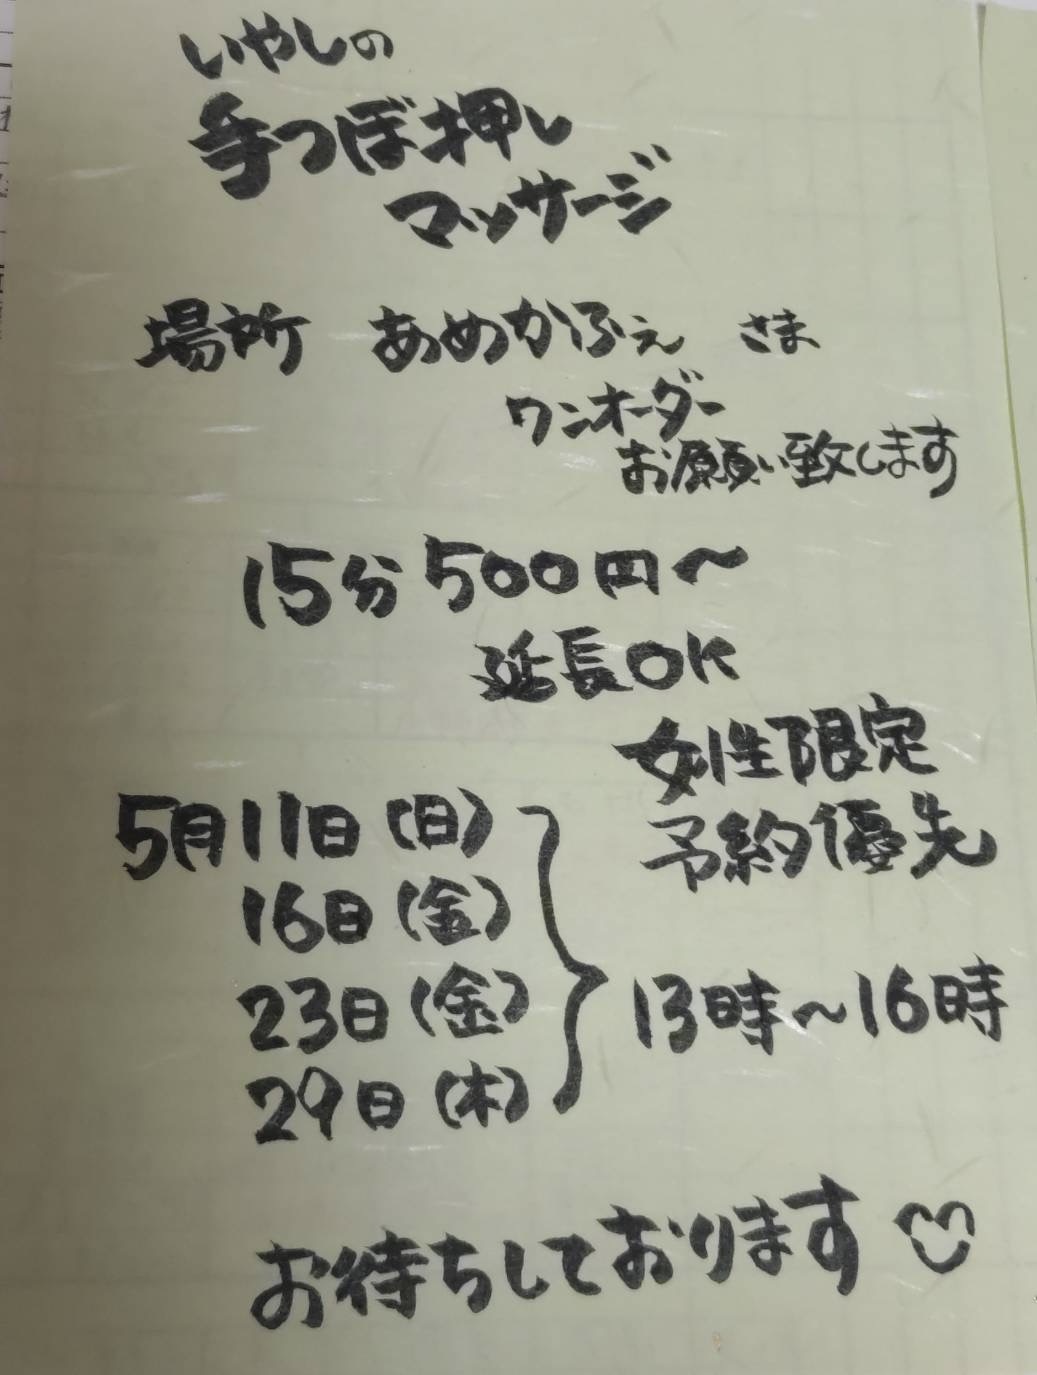 いやしの
手つぼ押し
マッサージ
場所 あめかふぇ さま
ワンオーダー
お願い致します
15分 500円〜
延長OK
女性限定
予約優先
5月11日(日)
16日(金)
23日(金)
29日(木)
13時〜16時
お待ちしております